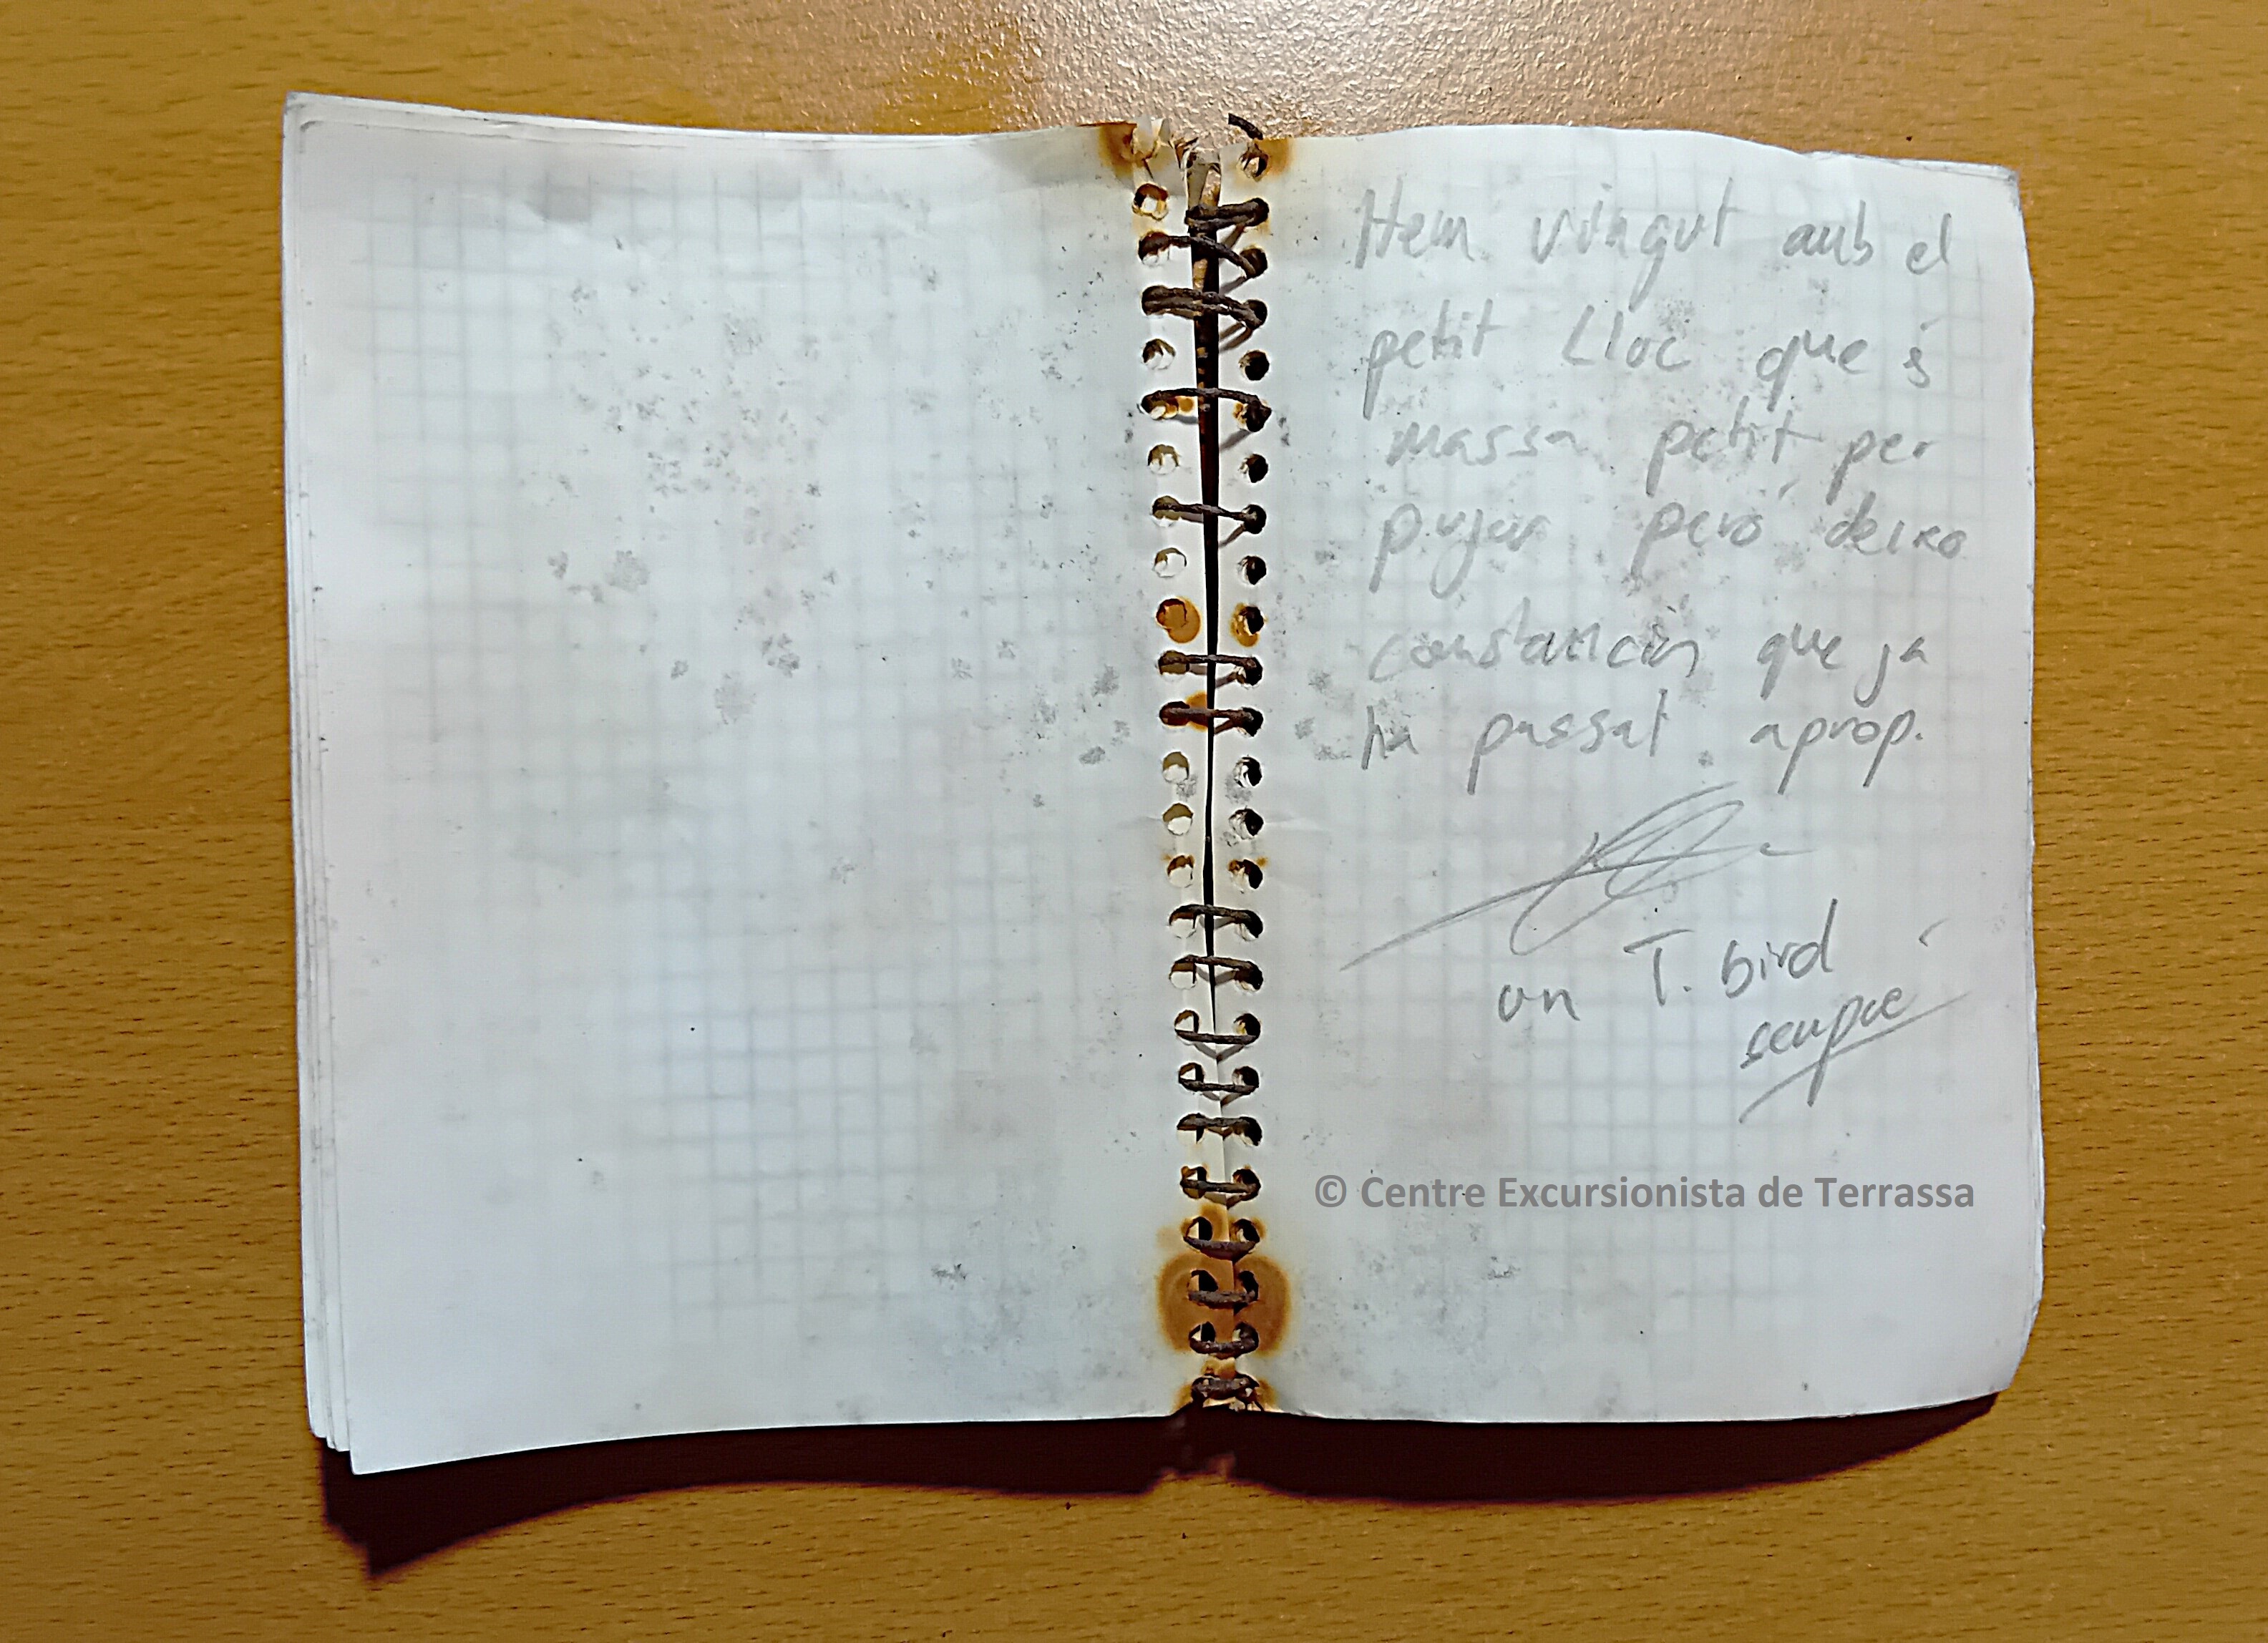 Hem vingut amb el
petit Lloc que és
massa petit per
pujar peró deixo
constancia que ja
ha passat aprop.
un T. bird
sempre
© Centre Excursionista de Terrassa